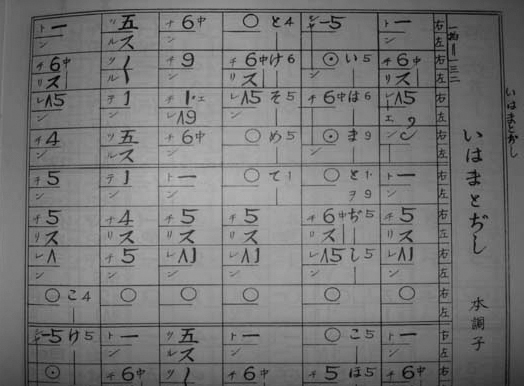 いはまとぢし
いはまとぢし
本調子
右 左 右 左 右 左 右 左 右 左 右 左 右 左 右 左 右 左 右
トン 一 チリ 6中 ス レエ Λ5 ン トン 一 チリ 5 ス レン Λ1 〇 トン 一 チ 6中
シャン -5 ⊙ い5 チン 6中 は6 ⊙ ま9 〇 と1 ヲ9 チリ 6中 ス ぢ5 レン Λ5 し5 〇 〇 こ5 チ 5 ほ5
〇 と4 チリ 6中 ス け6 レン Λ5 そ5 〇 め5 〇 て1 チリ 5 ス レン Λ1 〇 トン 一 チ 6中
チン 6中 チン 9 チレ 1 エ Λ9 チン 6中 トン 一 チリ 5 ス レン Λ1 〇 トン 一 チ 6中
ツル 五 ス ツル テン 1 ツル 五 ス テン 1 チリ 4 ス チン 5 〇 ツル 五 ス ツ
トン 一 チリ 6中 ス レン Λ5 チン 4 チン 5 チリ 5 ス レン Λ 〇 こ4 シャン -5 け5 ⊙